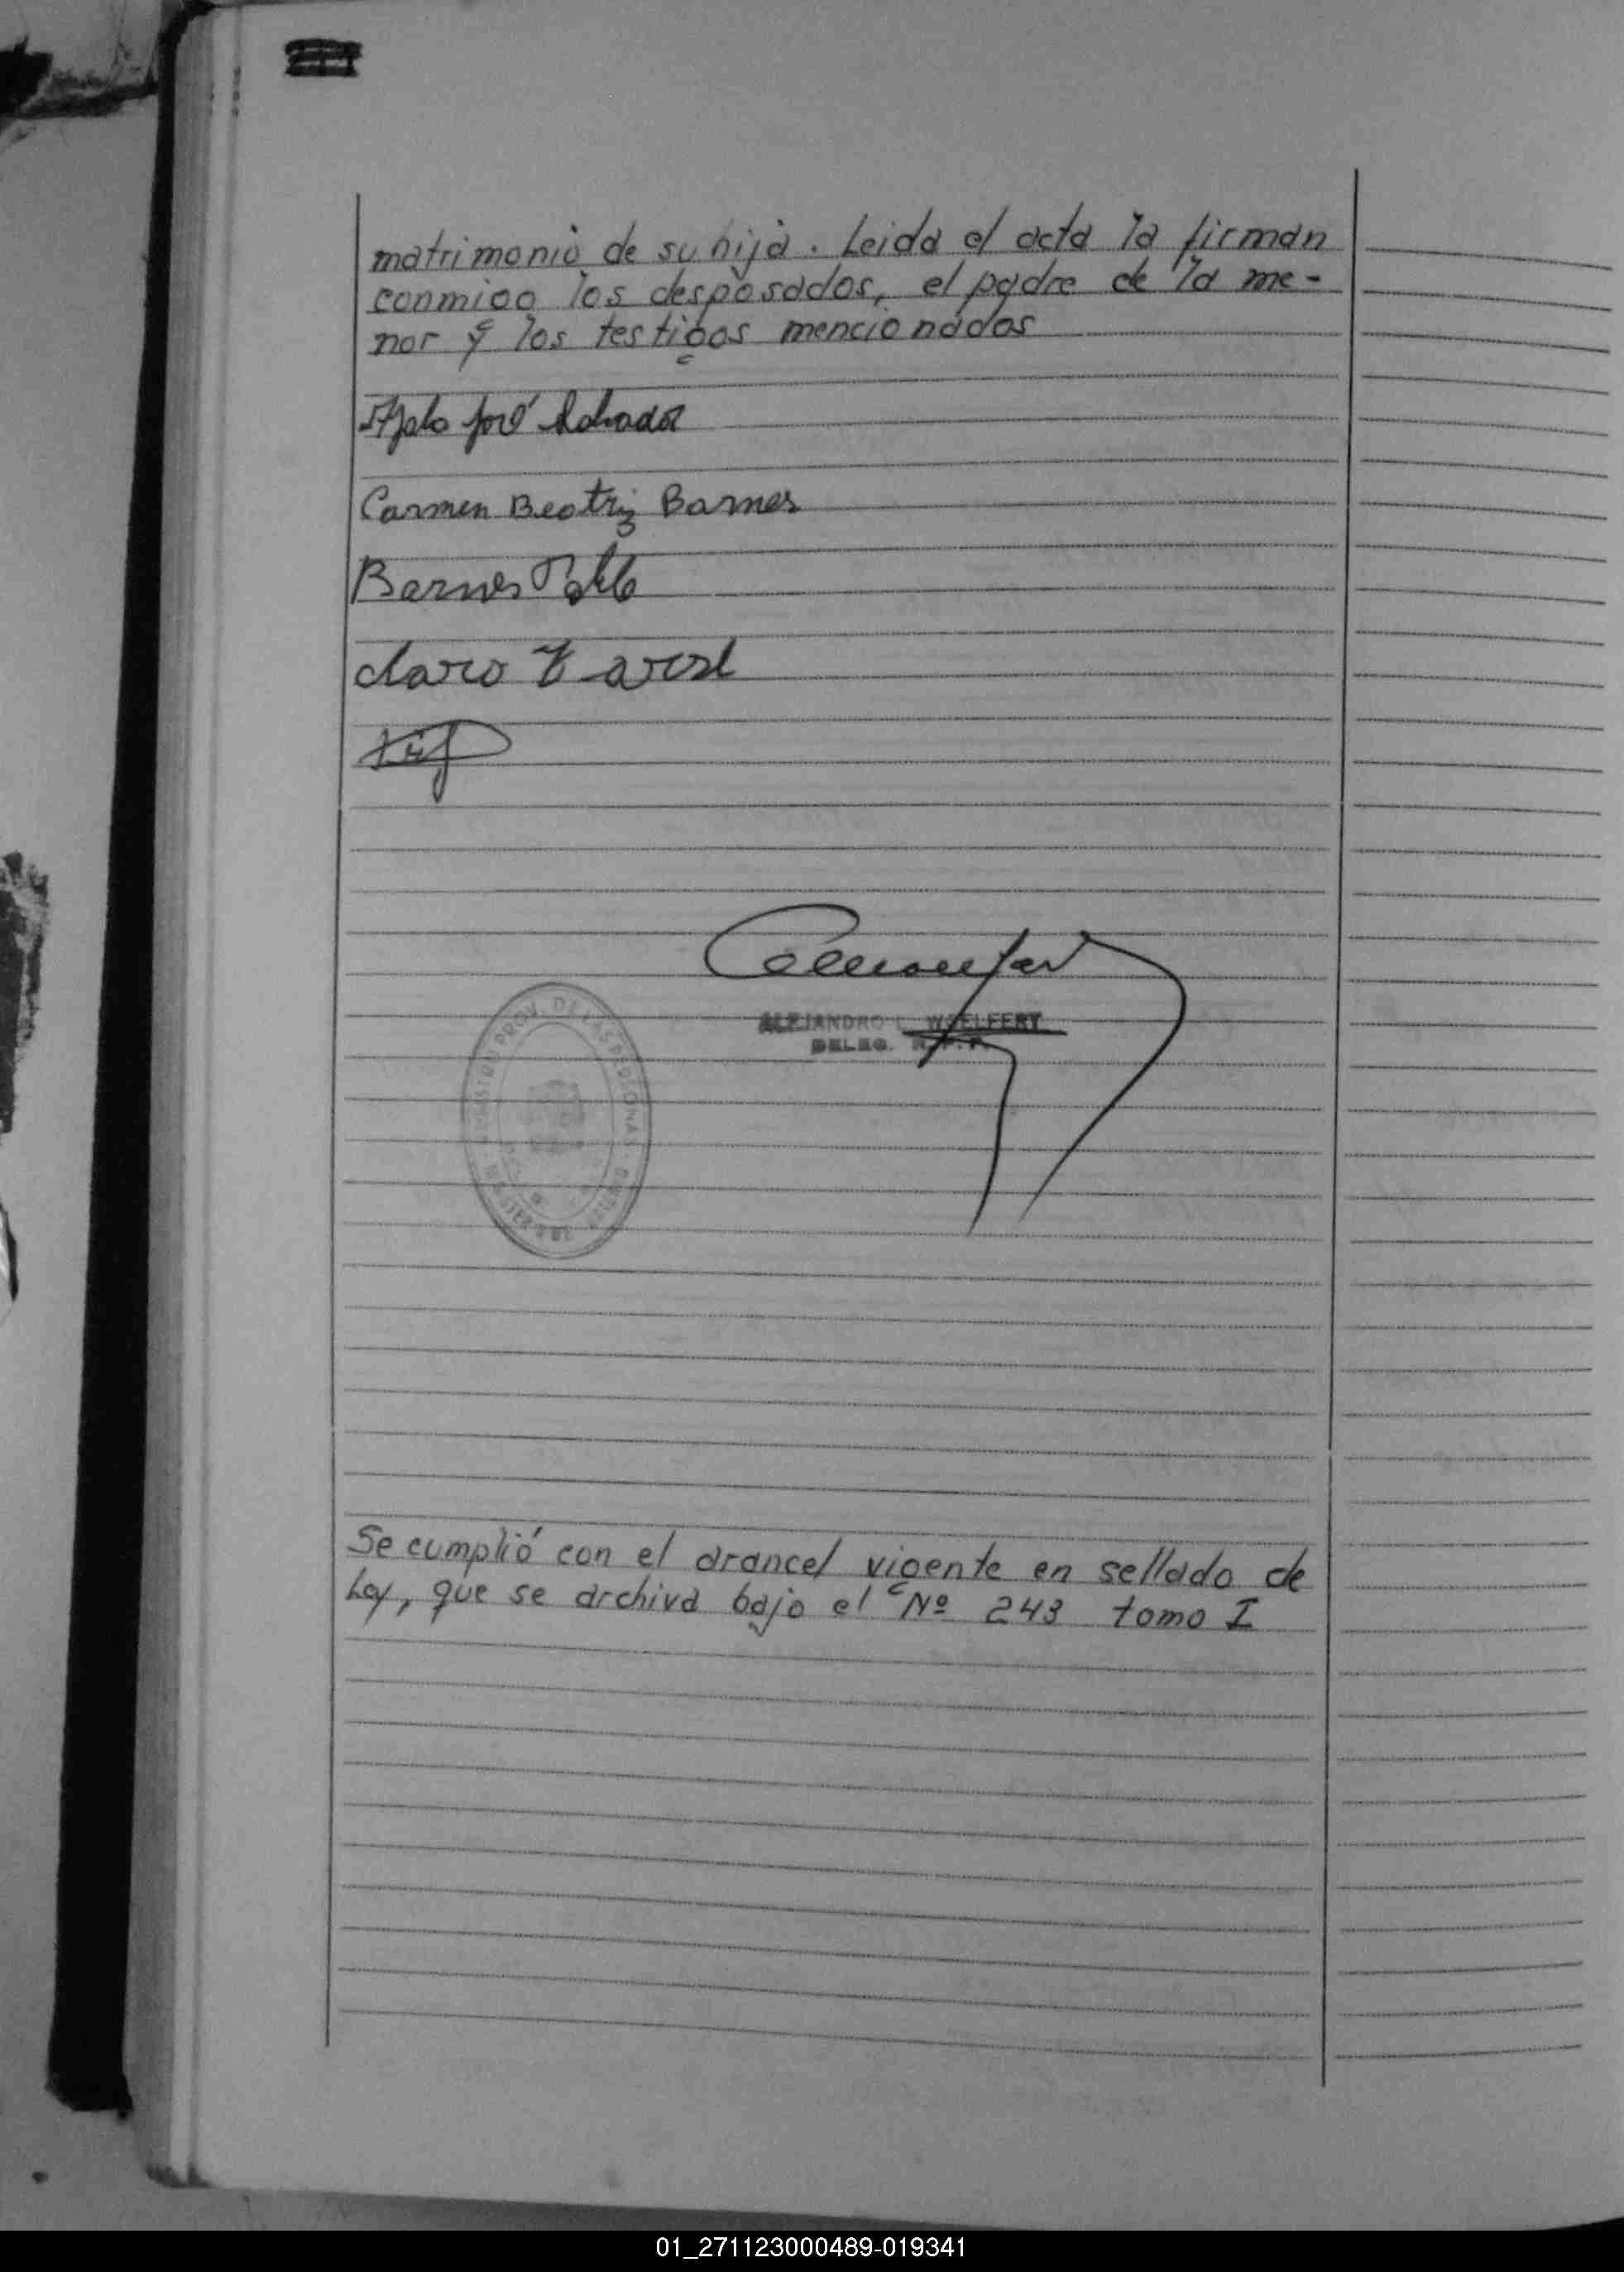 matrimonio de su hija. Leida el acta la firman
conmigo los desposados, el padre de la me-
nor y los testigos mencionados
José
Carmen Beatriz Barnes
Barnes Pablo
ALEJANDRO L. WOELFERT
DELEG. R. P. P.
REGISTRO PROV. DE LAS PERSONAS
Se cumplió con el arancel vigente en sellado de
Ley, que se archiva bajo el Nº 243 tomo I
01_271123000489-019341